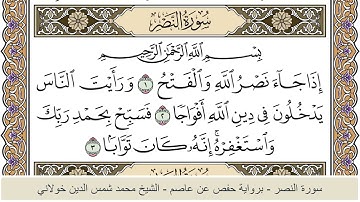 سُورَةُ النَّصْرِ
بِسْمِ اللَّهِ الرَّحْمَٰنِ الرَّحِيمِ
إِذَا جَاءَ نَصْرُ اللَّهِ وَالْفَتْحُ ١ وَرَأَيْتَ النَّاسَ
يَدْخُلُونَ فِي دِينِ اللَّهِ أَفْوَاجًا ٢ فَسَبِّحْ بِحَمْدِ رَبِّكَ
وَاسْتَغْفِرْهُ ۚ إِنَّهُ كَانَ تَوَّابًا ٣
سورة النصر - برواية حفص عن عاصم - الشيخ محمد شمس الدين خولاني